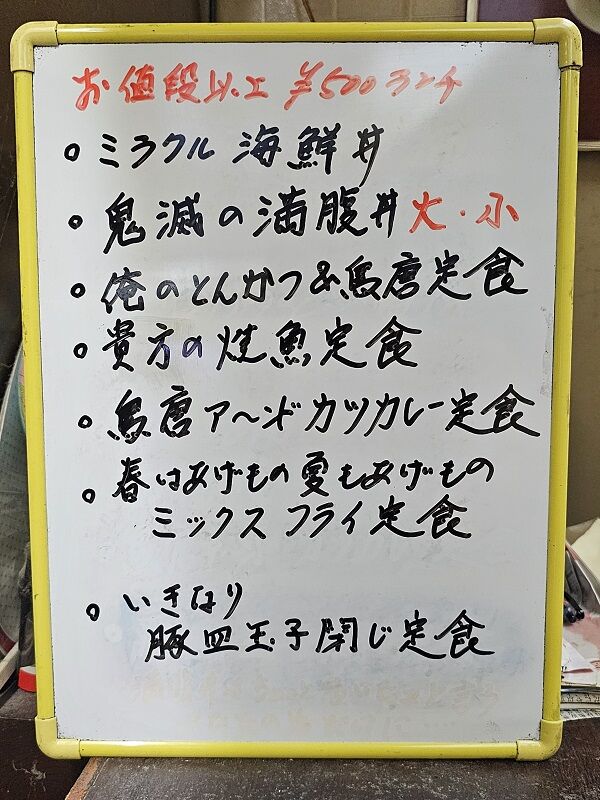 お値段以上 ¥500ランチ
○ミラクル 海鮮丼
○鬼滅の満腹丼 大・小
○俺のとんかつ&鳥唐定食
○貴方の焼魚定食
○鳥唐ア〜ンドカツカレー定食
○春はあげもの夏もあげもの
ミックスフライ定食
○いきなり
豚皿玉子閉じ定食